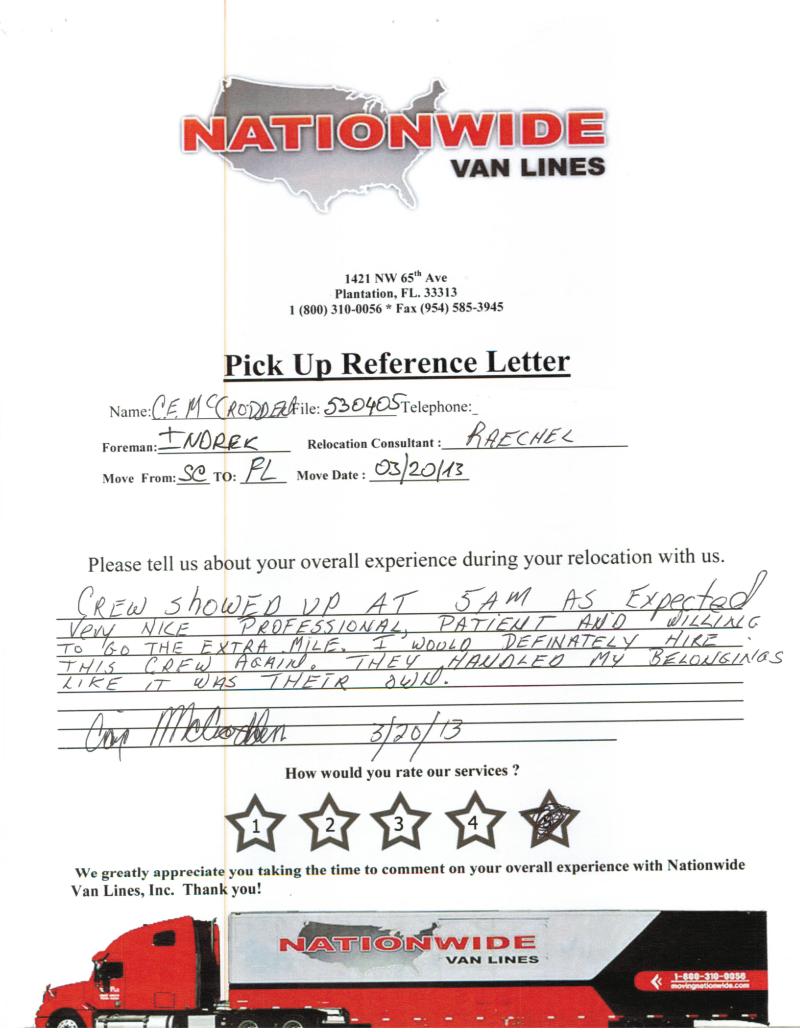 NATIONWIDE
VAN LINES
1421 NW 65th Ave
Plantation, FL. 33313
1 (800) 310-0056 * Fax (954) 585-3945
Pick Up Reference Letter
Name: C.E. McCRODDEN File: 530405 Telephone:
Foreman: INDREK Relocation Consultant : RAECHEL
Move From: SC TO: FL Move Date : 03/20/13
Please tell us about your overall experience during your relocation with us.
CREW SHOWED UP AT 5AM AS Expected
Very NICE PROFESSIONAL, PATIENT AND WILLING
TO GO THE EXTRA MILE. I WOULD DEFINATELY HIRE
THIS CREW AGAIN. THEY HANDLED MY BELONGINGS
LIKE IT WAS THEIR OWN.
McCrodden 3/20/13
How would you rate our services ?
1 2 3 4
We greatly appreciate you taking the time to comment on your overall experience with Nationwide
Van Lines, Inc. Thank you!
NATIONWIDE
VAN LINES
1-800-310-0056
movingnationwide.com